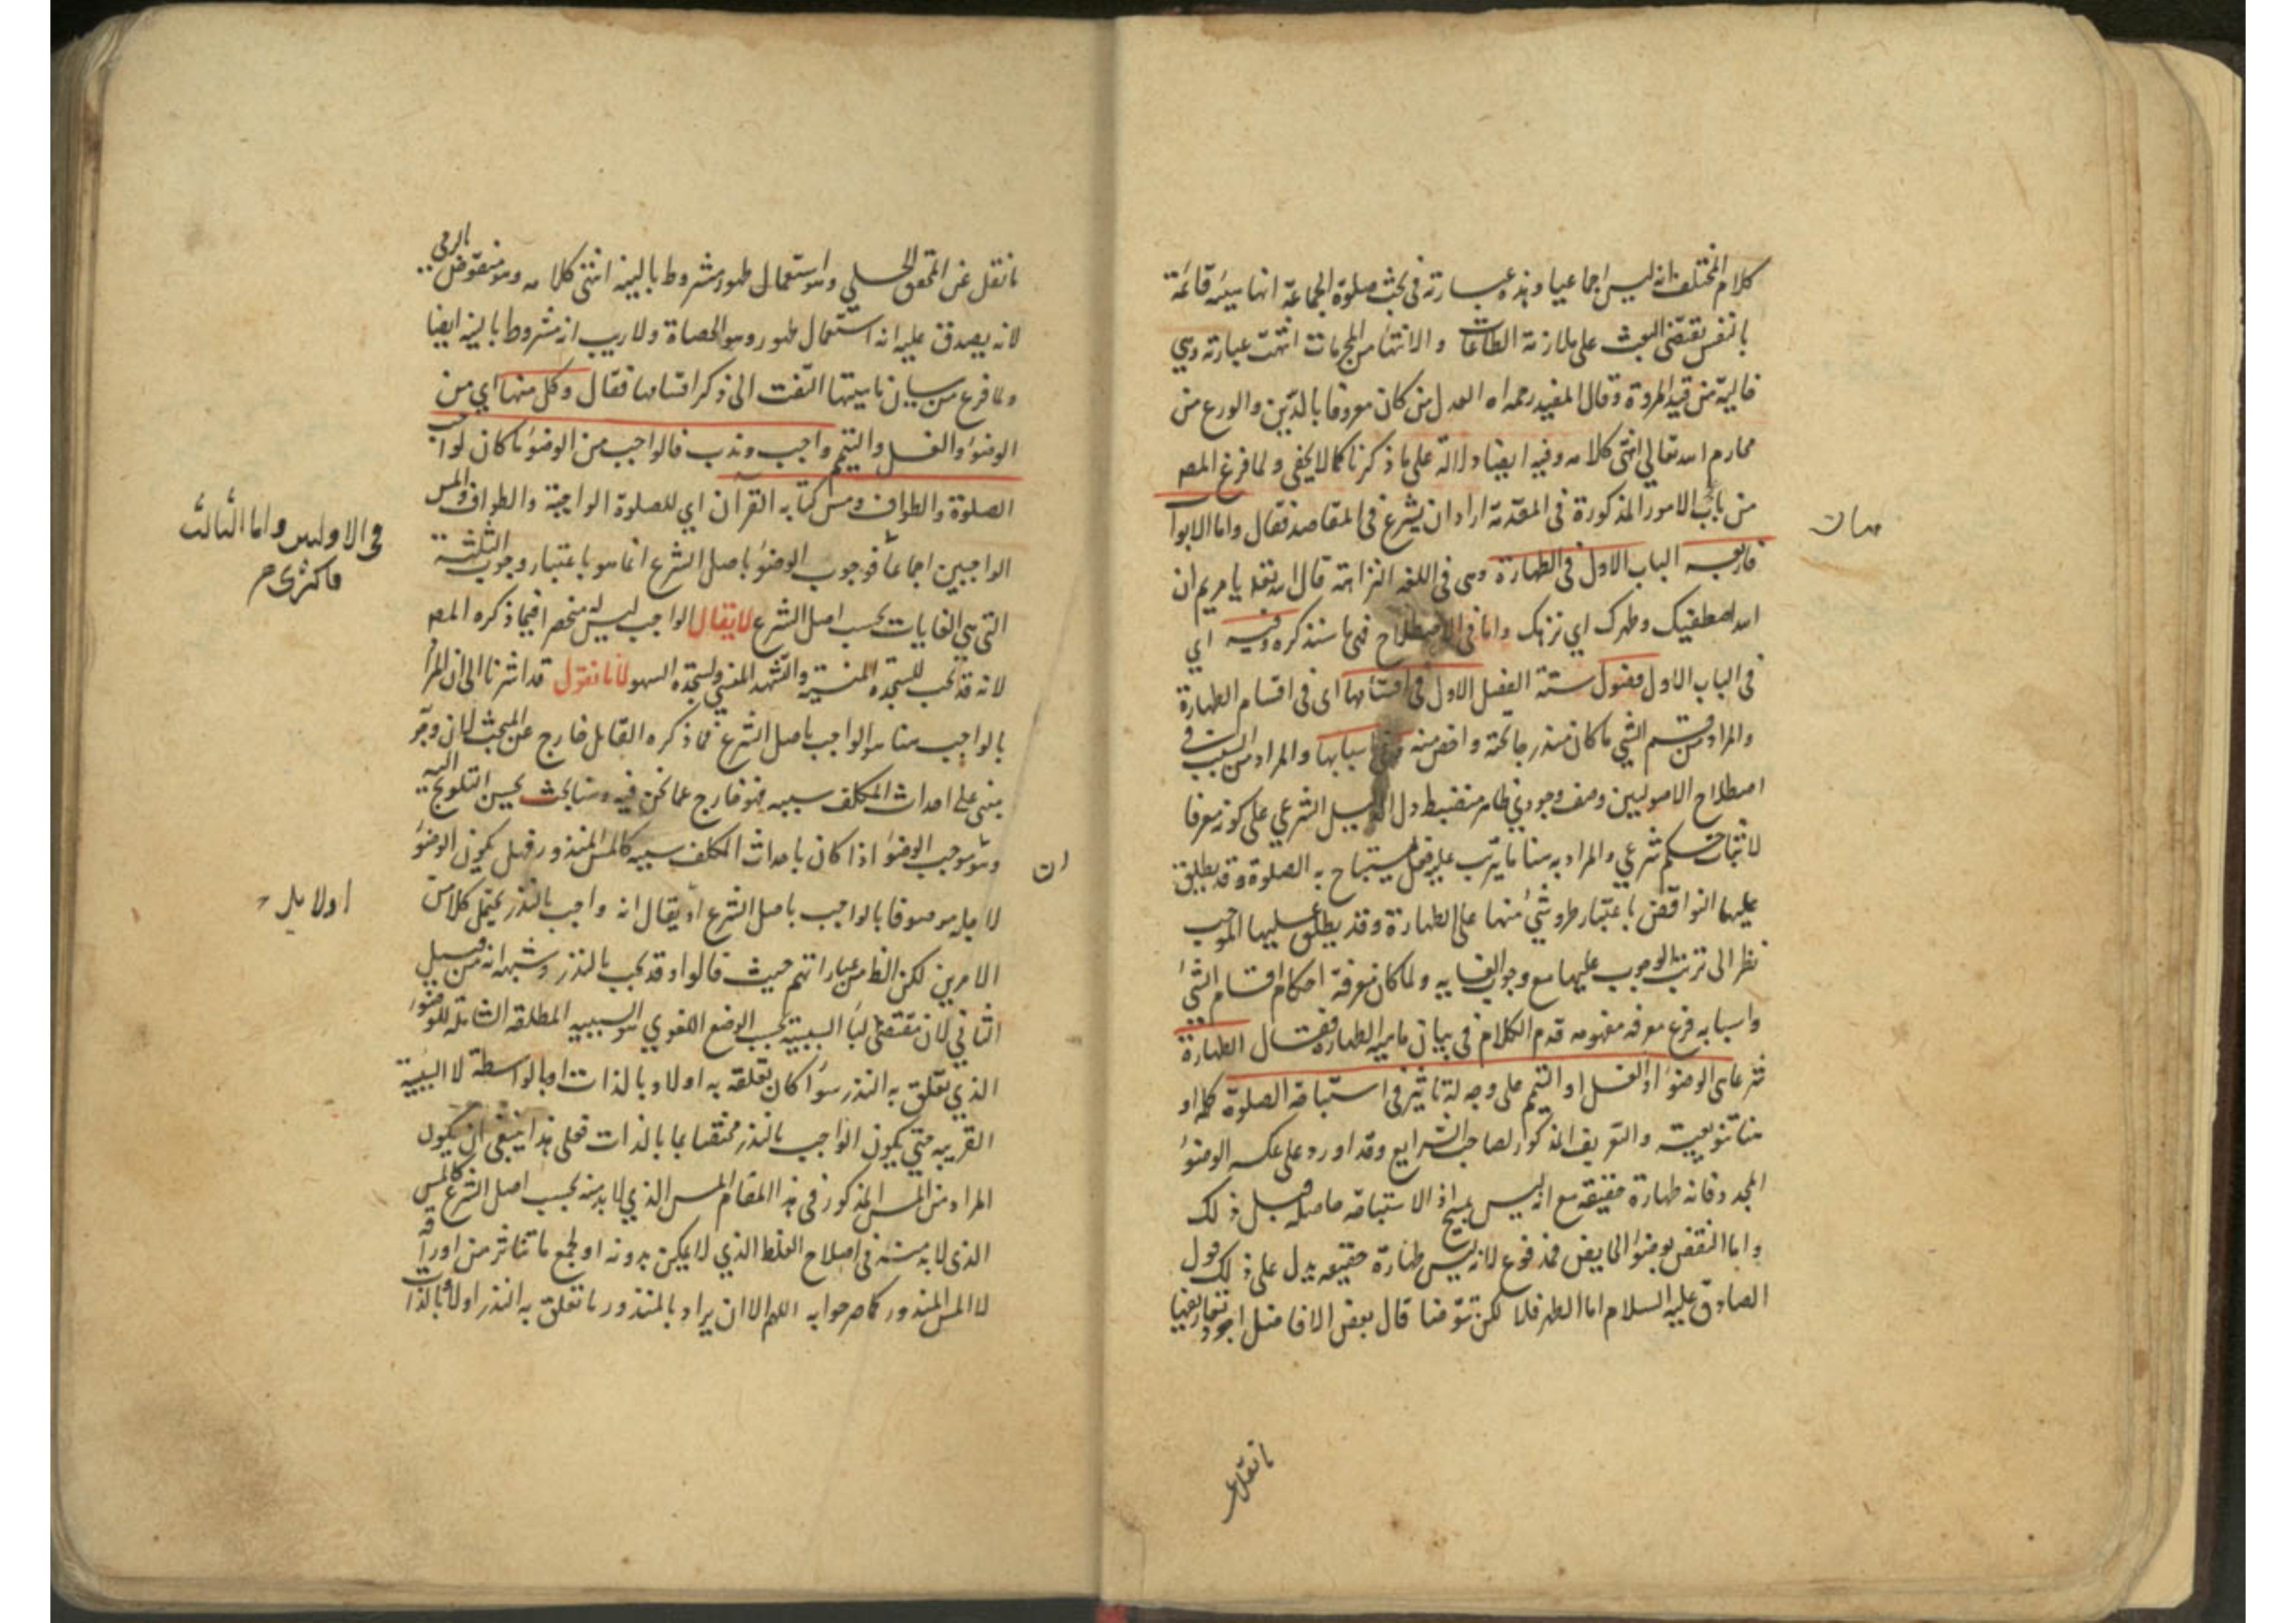 كلام المختلف انه ليس اجماعيا وهذه عبارته فى بحث صلوة الجماعة انها هيئة قائمة
بالنفس تقتضى البعث على ملازمة الطاعات والانتهاء من المحرمات انتهت عبارته وهي
خالية من قيد المروة وقال المفيد رحمه اه العدل من كان معروفا بالدين والورع من
محارم الله تعالي انتهى كلامه وفيه ايضا دلالة على ما ذكرنا كما لا يخفى ولما فرغ المص
من باب الامور المذكورة فى المقدمة اراد ان يشرع فى المقاصد فقال واما الابواب
فاربعه الباب الاول فى الطهارة وهى فى اللغه النزاهة قال الله تعالى يا مريم ان
الله اصطفيك وطهرك اي نزهك واما فى الاصطلاح فهى ما سنذكره وفيه اي
فى الباب الاول فصول ستة الفصل الاول فى اقسامها اى فى اقسام الطهارة
والمراد من قسم الشي ما كان مندرجا تحته واخص منه وفى اسبابها والمراد من السبب فى
اصطلاح الاصوليين وصف وجودي ظاهر منضبط دل الدليل الشرعي على كونه معرفا
لاثبات حكم شرعي والمراد به هنا ما يترتب عليه فعل يستباح به الصلوة وقد يطلق
عليها النواقض باعتبار طرو شئ منها على الطهارة وقد يطلق عليها الموجب
نظرا الى ترتب الوجوب عليها مع وجوب الغايه ولما كان معرفة احكام اقسام الشئ
واسبابه فرع معرفه مفهومه قدم الكلام فى بيان ماهية الطهارة فقال الطهارة
شرعا هى الوضوء او الغسل او التيمم على وجه له تاثير فى استباحة الصلوة كلمه او
هنا تنويعية والتعريف المذكور لصاحب الشرايع وقد اورد على عكسه الوضوء
المجدد فانه طهارة حقيقه مع انه ليس بمبيح اذ الاستباحة حاصله قبل ذلك
واما النقض بوضوء الحايض فمدفوع لانه ليس طهارة حقيقه يدل على ذلك قول
الصادق عليه السلام اما الطهر فلا لكن تتوضا قال بعض الافاضل اجود تعاريفها
ما نقل عن
ما نقل عن المحقق الحلي وهو استعمال طهور مشروط بالنية انتهى كلامه وهو منقوض بالرمي
لانه يصدق عليه انه استعمال طهور وهو الحصاة ولا ريب انه مشروط بالنية ايضا
ولما فرغ من بيان ماهيتها التفت الى ذكر اقسامها فقال وكل منها اي من
الوضوء والغسل والتيمم واجب وندب فالواجب من الوضوء ما كان لواجب
الصلوة والطواف ومس كتابه القران اي للصلوة الواجبة والطواف والمس
الواجبين اجماعا فوجوب الوضوء باصل الشرع انما هو باعتبار وجوب الثلثة
فى الاولين واما الثالث
فاكثرى م
التى هي الغايات بحسب اصل الشرع لا يقال الواجب ليس منحصرا فيما ذكره المص
لانه قد تجب للسجدة المنسية والتشهد المنسي ولسجدة السهو لانا نقول قد اشرنا الى ان المراد
بالواجب هنا هو الواجب باصل الشرع فما ذكره القائل خارج عن المبحث لان وجوبه
مبنى على احداث المكلف سببه فهو خارج عما نحن فيه وهنا بحث يحسن التلويح اليه
وهو وجب الوضوء اذا كان باحداث المكلف سببه كالمس المنذور فهل يكون الوضوء
لاجله موصوفا بالواجب باصل الشرع او يقال انه واجب بالنذر يحتمل كلا من
الامرين لكن الظ من عباراتهم حيث قالوا وقد تجب بالنذر وشبهه انه من قبيل
الثاني لان مقتضى لباء السببية بحسب الوضع اللغوي هو السببيه المطلقه الشاملة للوضوء
الذي تعلق به النذر سواء كان تعلقه به اولا وبالذات او بالواسطة لا السببية
القريبه حتي يكون الواجب بالنذر مختصا بما بالذات فعلى هذا ينبغى ان يكون
المراد من المس المذكور فى هذا المقام المس الذي لا بد منه بحسب اصل الشرع كالمس
الذى لا بد منه فى اصلاح الغلط الذي لا يمكن بدونه او لجمع ما تناثر من اوراقه
لا المس المنذور كما صرحوا به اللهم الا ان يراد بالمنذور ما تعلق به النذر اولا وبالذات